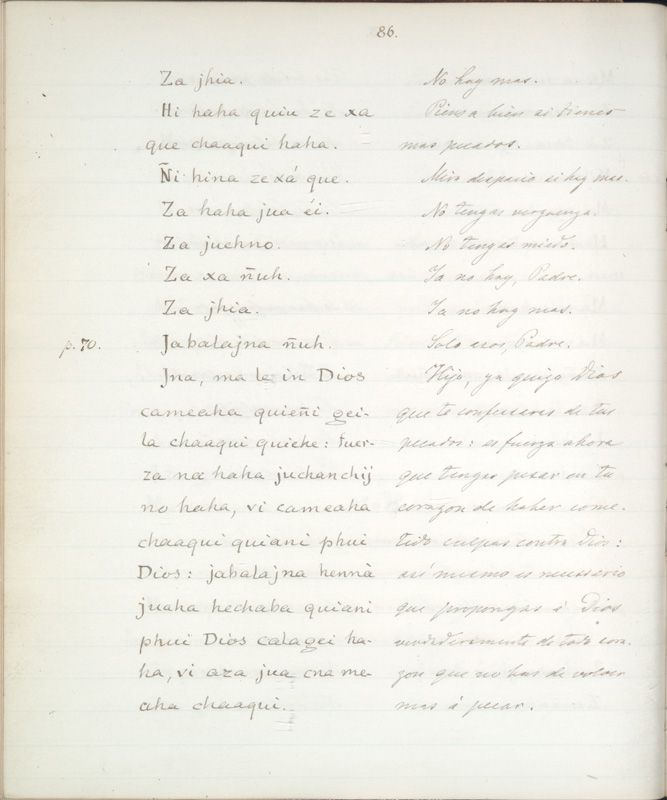 86.
Za jhia. No hay mas.
Hi haha quiu ze xa Piensa bien si tienes
que chaaqui haha. mas pecados.
Ñi hina ze xá que. Mira despacio si hay mas.
Za haha jua éi. No tengas verguenza.
Za juehno. No tengas miedo.
Za xa ñuh. Ya no hay, Padre.
Za jhia. Ya no hay mas.
p. 70. Jabalajna ñuh. Solo esos, Padre.
Jna, ma le in Dios Hijo, ya quizo Dios
cameaha quieñi gei- que te confesares de tus
la chaaqui quiehe: fuer- pecados: es fuerza ahora
za na haha juchanchij que tengas pesar en tu
no haha, vi cameaha corazon de haber come-
chaaqui quiani phui tido culpas contra Dios:
Dios: jabalajna hennà asi mismo es necessario
juaha hechaba quiani que propongas á Dios
phui Dios calagei ha- verdaderamente de todo cora-
ha, vi aza jua cna me- zon que no has de volver
aha chaaqui. mas á pecar.